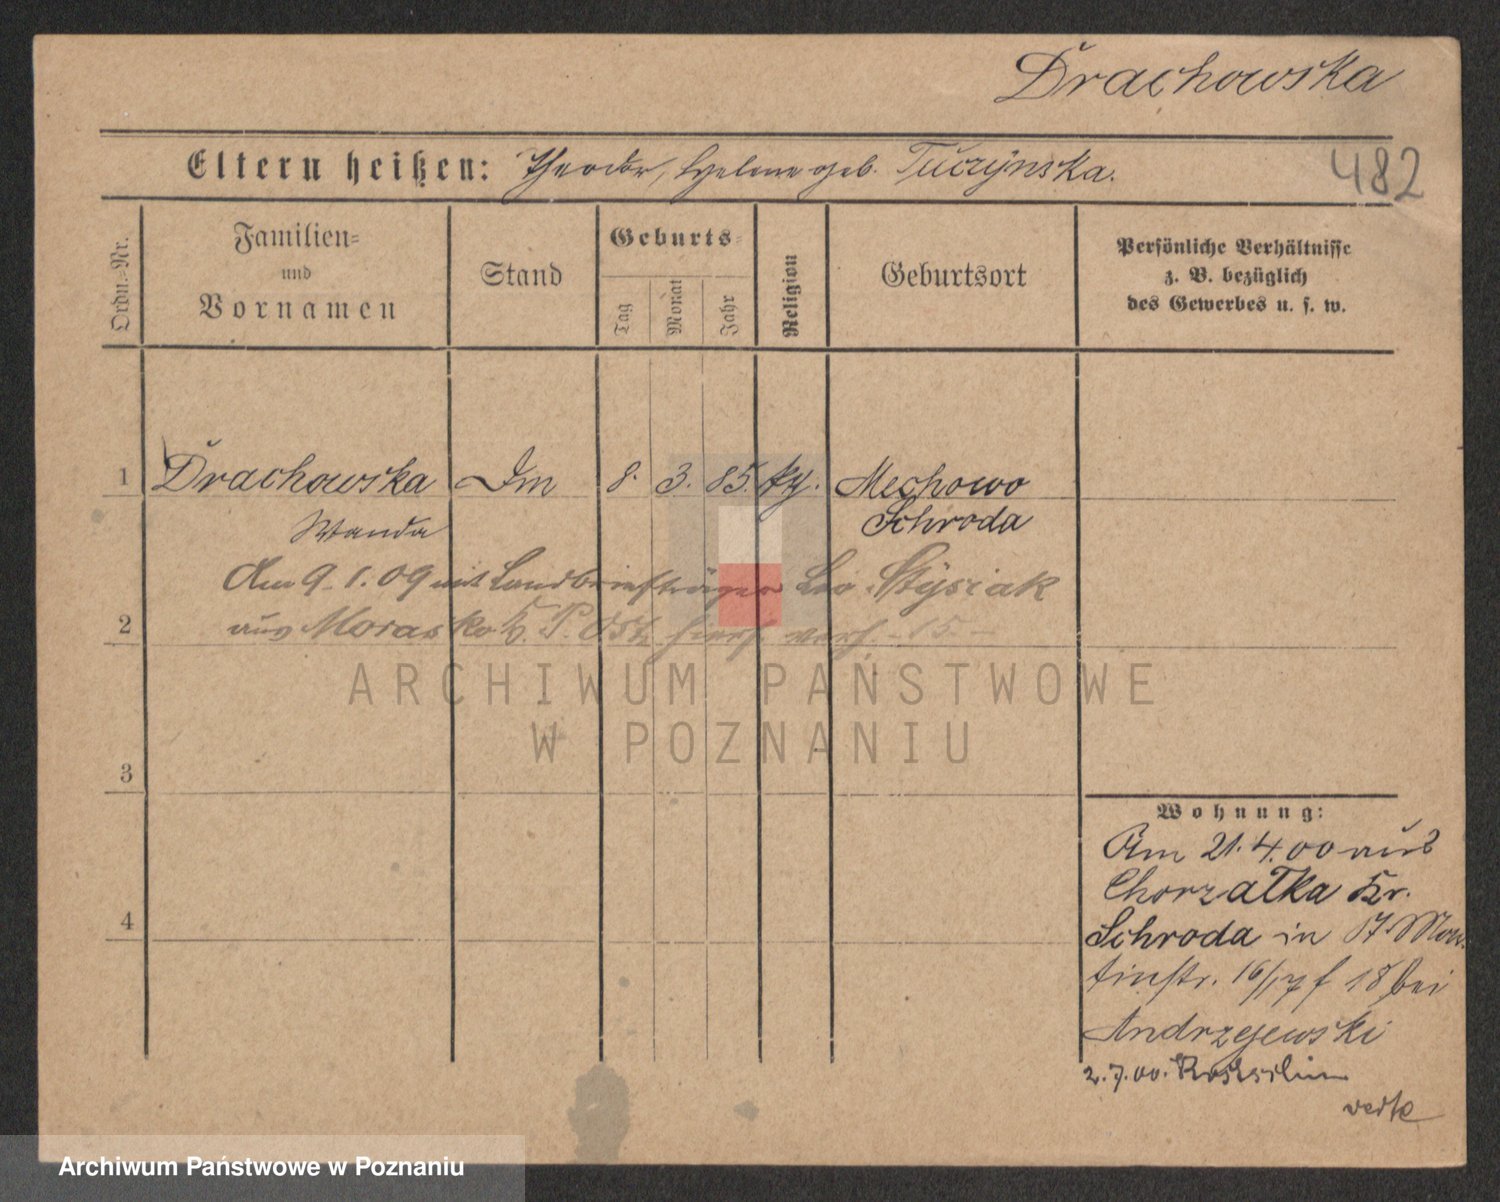 Drachowska
Eltern heißen: Theodor, Helene geb. Tuczynska.
482
Ordn.=Nr.
Familien=
und
Vornamen
Stand
Geburts=
Tag
Monat
Jahr
Religion
Geburtsort
Persönliche Verhältnisse
z. B. bezüglich
des Gewerbes u. s. w.
1 Drachowska 8. 3. 85. Mechowo
Wanda Schroda
Am 9.1.09 mit Landbriefträger Leo Stysiak
2 aus Morasko
ARCHIWUM PAŃSTWOWE
W POZNANIU
3
4
Wohnung:
Am 21.4.00 aus
Chorzatka Kr.
Schroda in
tinstr. 16/17 18 bei
Andrzejewski
2.7.00.
Archiwum Państwowe w Poznaniu